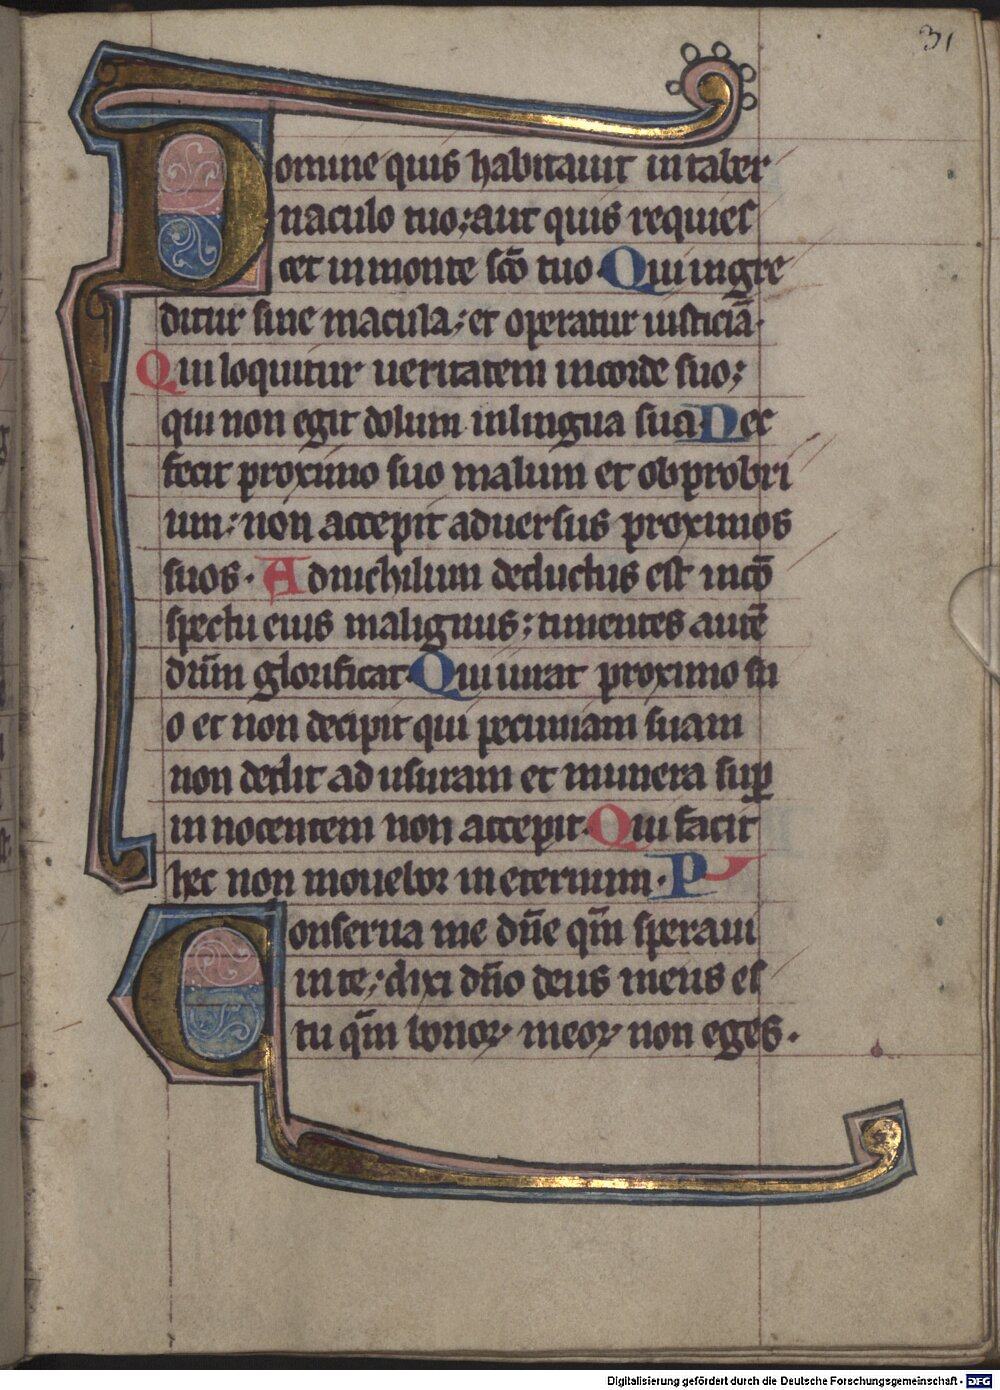 31
Domine quis habitauit in taber
naculo tuo; aut quis requies
cet in monte sc̄o tuo. Qui ingre
ditur sine macula; et operatur iusticiā.
Qui loquitur ueritatem in corde suo;
qui non egit dolum in lingua sua. Nec
fecit proximo suo malum et obprobri
um; non accepit aduersus proximos
suos. Ad nichilum deductus est in cō
spectu eius malignus; timentes autē
dn̄m glorificat. Qui iurat proximo su
o et non decipit qui pecuniam suam
non dedit ad usuram et munera sup̄
in nocentem non accepit. Qui facit
hec non mouebor in eternum. P
Conserua me dn̄e qm̄ speraui
in te; dixi dn̄o deus meus es
tu qm̄ bonoꝝ meoꝝ non eges.
Digitalisierung gefördert durch die Deutsche Forschungsgemeinschaft - DFG